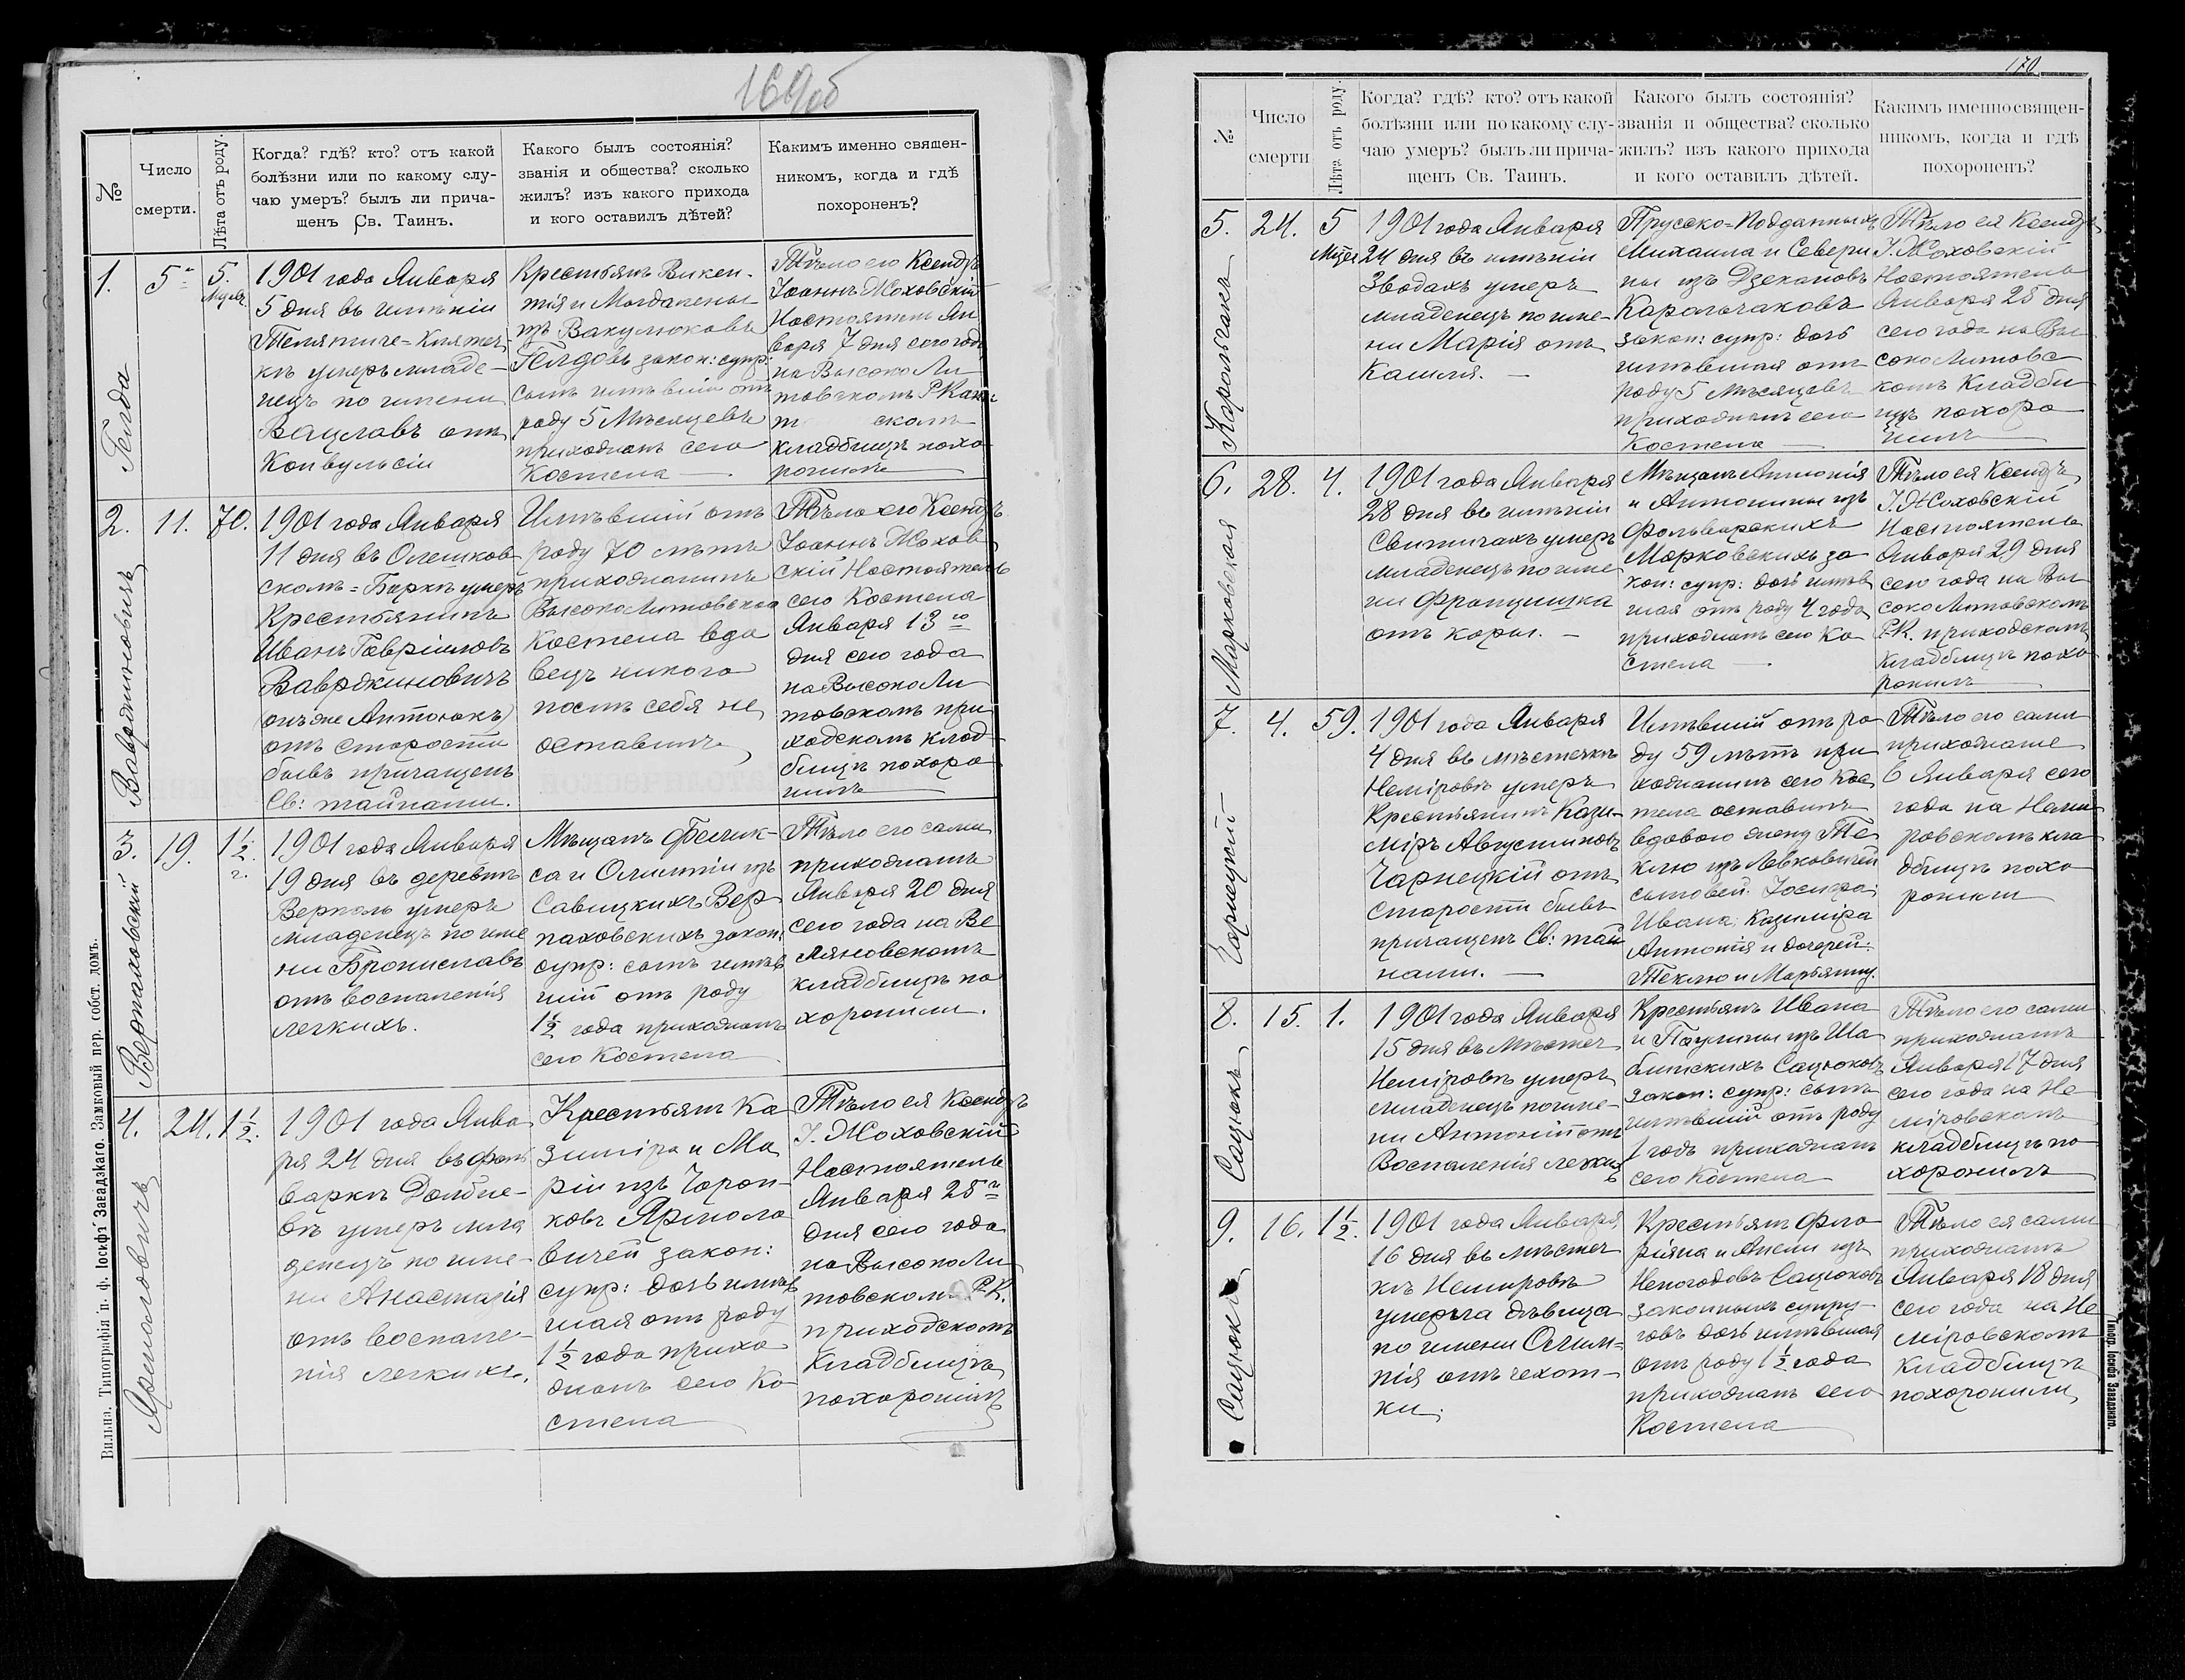 169об
№
Число
смерти.
Лѣта отъ роду.
Когда? гдѣ? кто? отъ какой
болѣзни или по какому слу-
чаю умеръ? былъ ли прича-
щенъ Св. Таинъ.
Какого былъ состоянія?
званія и общества? сколько
жилъ? изъ какого прихода
и кого оставилъ дѣтей?
Какимъ именно священ-
никомъ, когда и гдѣ
похороненъ?
1.
Гелда
5
5.
1901 года Января
5 дня въ имѣніи
Телятиче-Княже
кѣ умеръ младе-
нецъ по имени
Вацлавъ отъ
Конвульсіи
Крестьянъ Викен-
тія и Магдалены
изъ Вакулюковъ
Гелдовъ закон: супр:
сынъ имѣвшій отъ
роду 5 Мѣсяцевъ
прихожанъ сего
Костела
Тѣло его Ксендзъ
Іоаннъ Жоховскій
Настоятель Ян
варя 7 дня сего года
на Высоко Ли
товскомъ Р
скомъ
кладбищѣ похо
ронилъ
2.
Вавржиновичъ
11.
70.
1901 года Января
11 дня въ Олешков
скомъ-Боркѣ умеръ
Крестьянинъ
Иванъ Гавріиловъ
Вавржиновичъ
(онъ же Антоюкъ)
отъ старости
бывъ причащенъ
Св: тайнами.
Имѣвшій отъ
роду 70 лѣтъ
прихожанинъ
ВысокоЛитовскаго
Костела вдо
вецъ никого
послѣ себя не
оставилъ
Тѣло его Ксендзъ
Іоаннъ Жохов
скій Настоятель
сего Костела
Января 13го
дня сего года
на Высоко Ли
товскомъ при
ходскомъ клад
бищѣ похоро
нилъ
3.
Верпаховскій
19.
1 1/2 г.
1901 года Января
19 дня въ деревнѣ
Верполь умеръ
младенецъ по име
ни Брониславъ
отъ воспаленія
легкихъ.
Мѣщанъ Феликса и Олимпіи изъ
Савицкихъ Вер
паховскихъ закон:
супр: сынъ имѣв
шій отъ роду
1 1/2 года прихожанъ
сего Костела
Тѣло его сами
прихожане
Января 20 дня
сего года на Ве
ляновскомъ
кладбищѣ по
хоронили.
4.
Ярмоловичъ
24.
1 1/2.
1901 года Янва
ря 24 дня въ фоль
варкѣ Долбне-
вѣ умеръ мла
денецъ по име-
ни Анастазія
отъ воспале-
нія легкихъ.
Крестьянъ Ка
зиміра и Ма
ріи изъ Чорон-
ковъ Ярмоло
вичей закон:
супр: дочь имѣв
шая отъ роду
1 1/2 года прихо
жанъ сего Ко
стела
Тѣло ея Ксендзъ
І. Жоховскій
Настоятель
Января 25
дня сего года
на Высоко Ли
товскомъ Р.К.
приходскомъ
Кладбищѣ
похоронилъ
Вильна. Типографія п. ф. Іосифъ Завадзкаго. Замковый пер. собст. домъ.
170
№
Число
смерти
Лѣта отъ роду.
Когда? гдѣ? кто? отъ какой
болѣзни или по какому слу-
чаю умеръ? былъ ли прича-
щенъ Св. Таинъ.
Какого былъ состоянія?
званія и общества? сколько
жилъ? изъ какого прихода
и кого оставилъ дѣтей.
Какимъ именно священ-
никомъ, когда и гдѣ
похороненъ?
5.
Карольчакъ
24.
5
1901 года Января
24 дня въ имѣніи
Зводахъ умеръ
младенецъ по име-
ни Марія отъ
Кашля.
Прусско-Подданныхъ
Михаила и Севери
ны изъ Дзекановъ
Карольчаковъ
закон: супр: дочь
имѣвшая отъ
роду 5 Мѣсяцевъ
прихожанъ сего
Костела
Тѣло ея Ксендзъ
І. Жоховскій
Настоятель
Января 25 дня
сего года на Вы
соко Литовс
комъ Кладби
щѣ похоро
нилъ
6.
Марковская
28.
4.
1901 года Января
28 дня въ имѣніи
Свитичахъ умеръ
младенецъ по име
ни Францишка
отъ коры.
Мѣщанъ Антонія
и Антонины изъ
Фольварскихъ
Марковскихъ за
кон: супр: дочь имѣв
шая отъ роду 4 года
прихожанъ сего Ко
стела
Тѣло ея Ксендзъ
І. Жоховскій
Настоятель
Января 29 дня
сего года на Вы
соко Литовскомъ
Р.К. приходскомъ
кладбищѣ похо
ронилъ
7.
Чарнецкій
4.
59.
1901 года Января
4 дня въ мѣстечкѣ
Неміровѣ умеръ
Крестьянинъ Кази-
міръ Августиновъ
Чарнецкій отъ
Старости бывъ
причащенъ Св: тай
нами.
Имѣвшій отъ ро
ду 59 лѣтъ при
хожанинъ сего Кос
тела оставилъ
вдовою жену Те
клю изъ Левковичей
сыновей: Іосифа,
Ивана, Казиміра
Антонія и дочерей:
Теклю и Марьянну.
Тѣло его сами
прихожане
6 Января сего
года на Неми
ровскомъ кла
дбищѣ похо
ронили
8.
Сацюкъ
15.
1.
1901 года Января
15 дня въ Мѣстеч
Неміровѣ умеръ
младенецъ по име-
ни Антоній отъ
Воспаленія легкихъ
Крестьянъ Ивана
и Паулины изъ Ша
блинскихъ Сацюковъ
закон: супр: сынъ
имѣвшій отъ роду
1 годъ прихожанъ
сего Костела
Тѣло его сами
прихожанъ
Января 17 дня
сего года на Не
міровскомъ
кладбищѣ по
хоронилъ
9.
Сацюкъ
16.
1 1/2.
1901 года Января
16 дня въ мѣстеч
кѣ Немировѣ
умерла дѣвица
по имени Олим-
пія отъ чехот-
ки.
Крестьянъ Фло
ріяна и Анели изъ
Непогодовъ Сацюковъ
законныхъ супру-
говъ дочь имѣвшая
отъ роду 1 1/2 года
прихожанъ сего
Костела
Тѣло ея сами
прихожанъ
Января 18 дня
сего года на Не
міровскомъ
Кладбищѣ
похоронили
Типогр. Іосифа Завадзкаго.